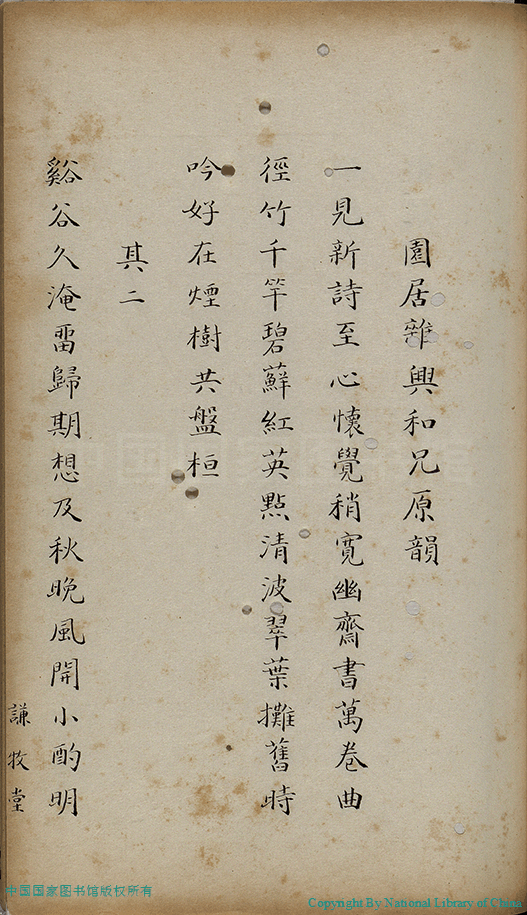 園居雜興和兄原韻
一見新詩至心懷覺稍寬幽齋書萬卷曲
徑竹千竿碧蘚紅英點清波翠葉攤舊時
吟好在煙樹共盤桓
其二
谿谷久淹畱歸期想及秋晚風開小酌明
謙牧堂
中国国家图书馆版权所有
Copyright By National Library of China